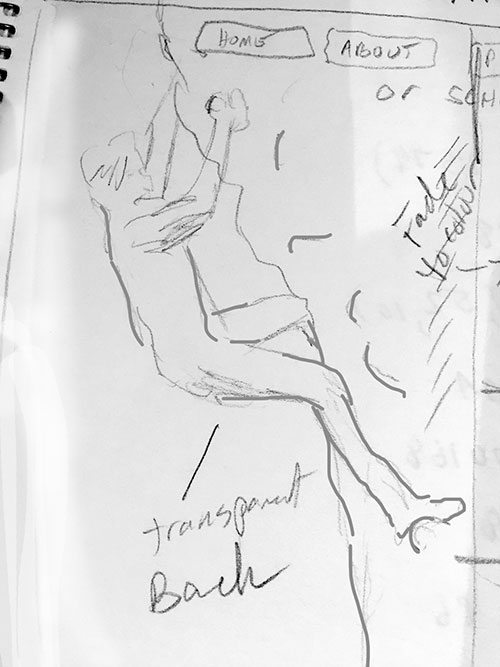 HOME
ABOUT
or SCH
Fade
to colour
transparent
Back